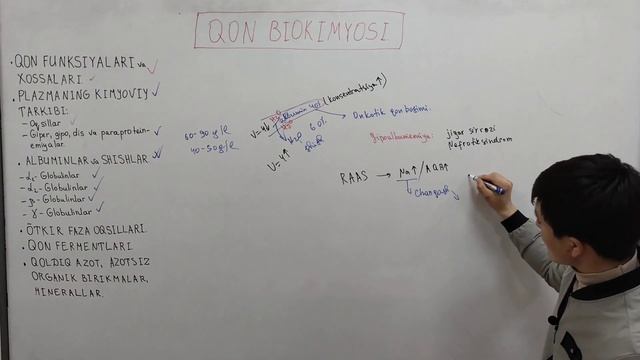 QON BIOKIMYOSI
• QON FUNKSIYALARI va
XOSSALARI.
• PLAZMANING KIMYOVIY
TARKIBI:
- Oqsillar
- Giper, gipo, dis va para,protein-
emiyalar.
• ALBUMINLAR va SHISHLAR
- α₁- Globulinlar
- α₂- Globulinlar
- β- Globulinlar
- γ- Globulinlar
• ÖTKIR FAZA OQSILLARI.
• QON FERMENTLARI
• QOLDIQ AZOT, AZOTSIZ
ORGANIK BIRIKMALAR,
MINERALLAR.
60-90 g/l
40-50g/l
(konsentratsiya↑)
V=4↓
Albumin
H₂O
60%
V=4↑
Onkotik qon bosimi.
Gipoalbumemiya:
jigar sirrozi
Nefrotik sindrom
RAAS → Na↑/AQB↑
Chanqash